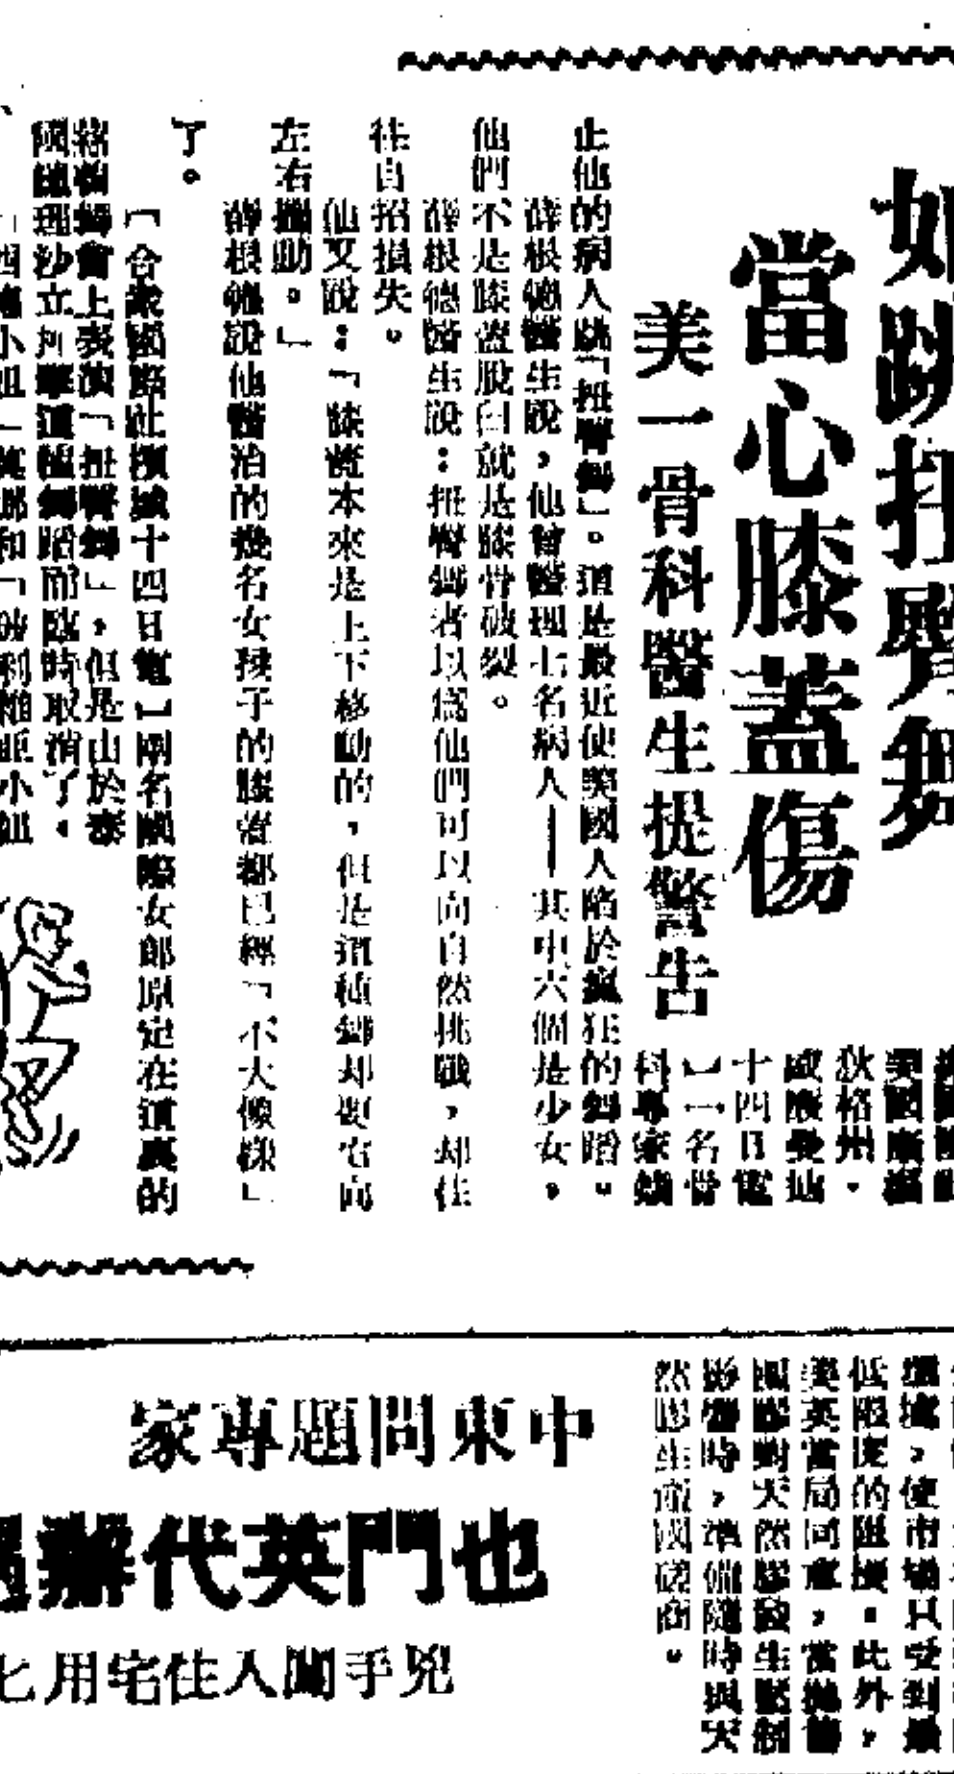 如跳扭臀舞
當心膝蓋傷
美一骨科醫生提警告
美國
狄格州,
威
十四日電
】一名骨
科專家
止他的病人跳「扭臀舞」。這是最近使美國人陷於瘋狂的舞蹈。
薛根德醫生說,他曾醫理七名病人——其中六個是少女,
他們不是膝蓋脫臼就是膝骨破裂。
薛根德醫生說:扭臀舞者以為他們可以向自然挑戰,却往
往自招損失。
他又說:「膝蓋本來是上下移動的,但是這種舞却要它向
左右擺動。」
薛根德說他醫治的幾名女孩子的膝蓋都已經「不大像樣」
了。
【合衆國際社檳城十四日電】兩名國際女郎原定在這裏的
慈善舞會上表演「扭臀舞」,但是由於泰
國總理沙立抨擊這種舞蹈而臨時取消了。
小姐」 和「玻利維亞小姐
環境,使市場只受到最
低限度的阻擾。此外,
美英當局同意,當拋售
國膠對天然膠發生壓制
影響時,準備隨時與天
然膠生產國磋商。
中東問題專家
也門英代辦遇
兇手闖入住宅用匕